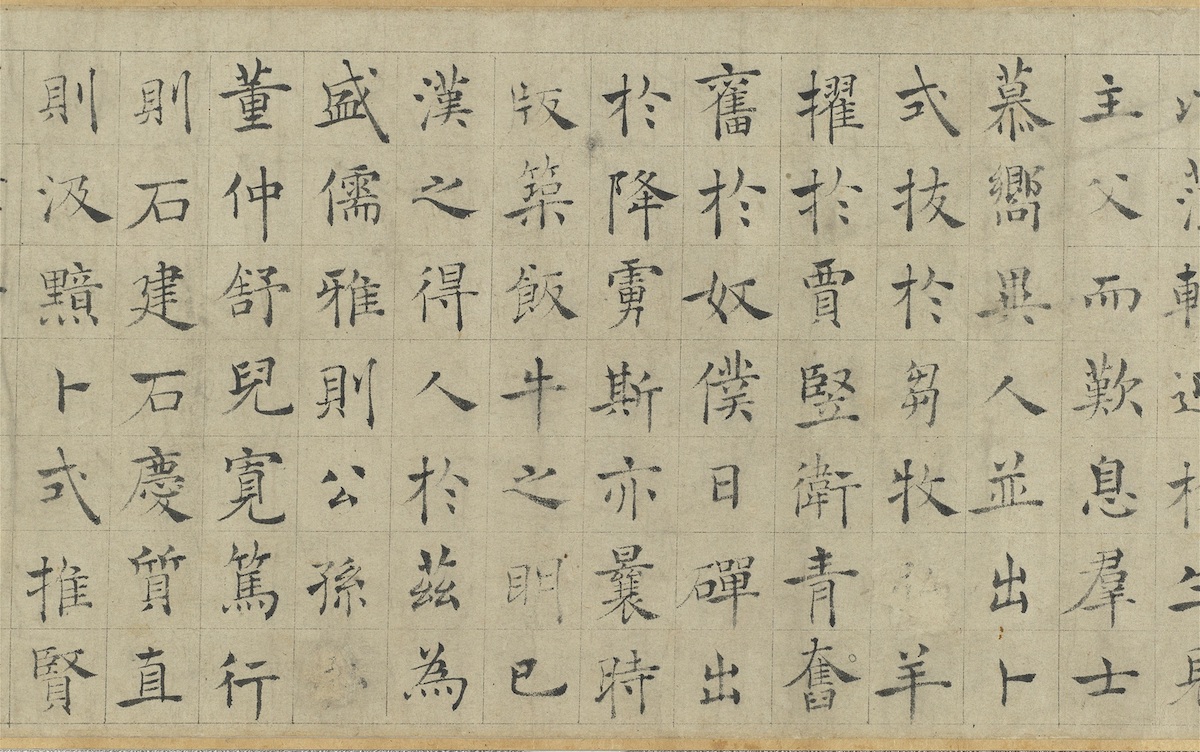 主父而歎息羣士
慕嚮異人並出卜
式拔於芻牧羊
擢於賈豎衛青奮
舊於奴僕日磾出
於降虜斯亦曩時
版築飯牛之明已
漢之得人於茲為
盛儒雅則公孫
董仲舒兒寬篤行
則石建石慶質直
則汲黯卜式推賢